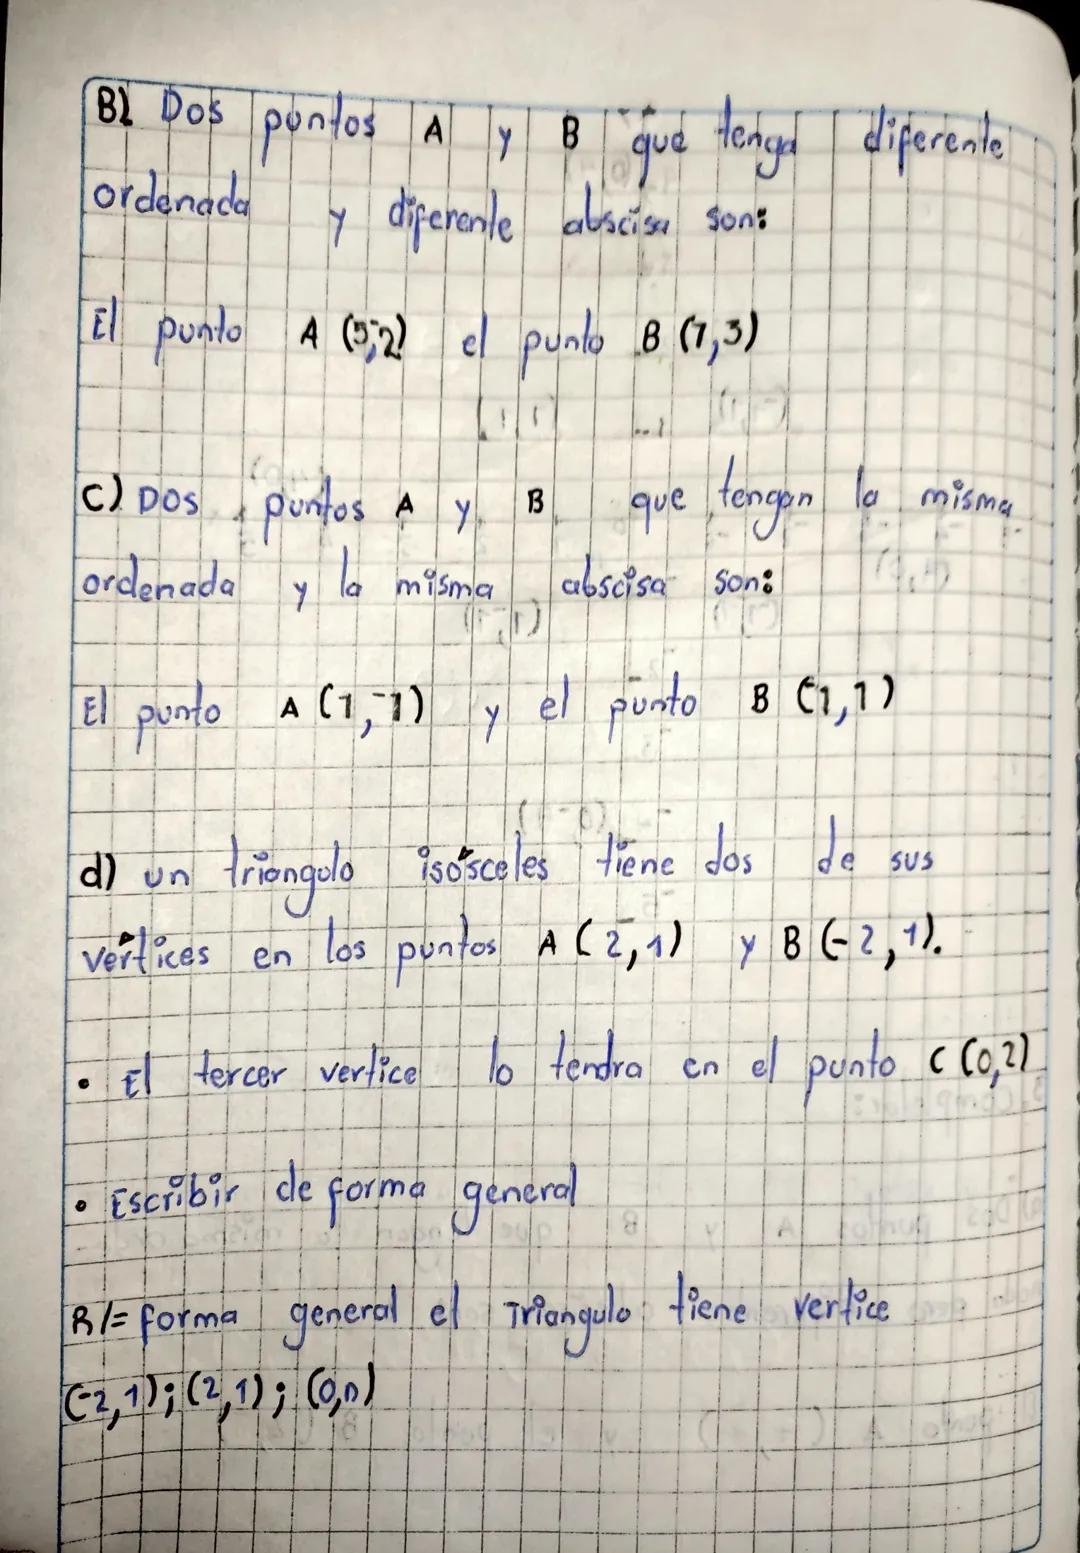 B) Dos puntos A y B que tenga diferente
ordenada y diferente abscisa son:
El punto A (5,-2) el punto B (7,3)
C) Dos puntos A y B que tengan la misma
ordenada y la misma abscisa son:
El punto A (1,-1) y el punto B (-1,1)
d) un triangulo isósceles tiene dos de sus
vértices en los puntos A (2,1) y B (-2,1).
• El tercer vertice lo tendra en el punto C (0,2)
• Escribir de forma general
R/= forma general el Triangulo tiene vertice
(-2,1); (2,1); (0,n)